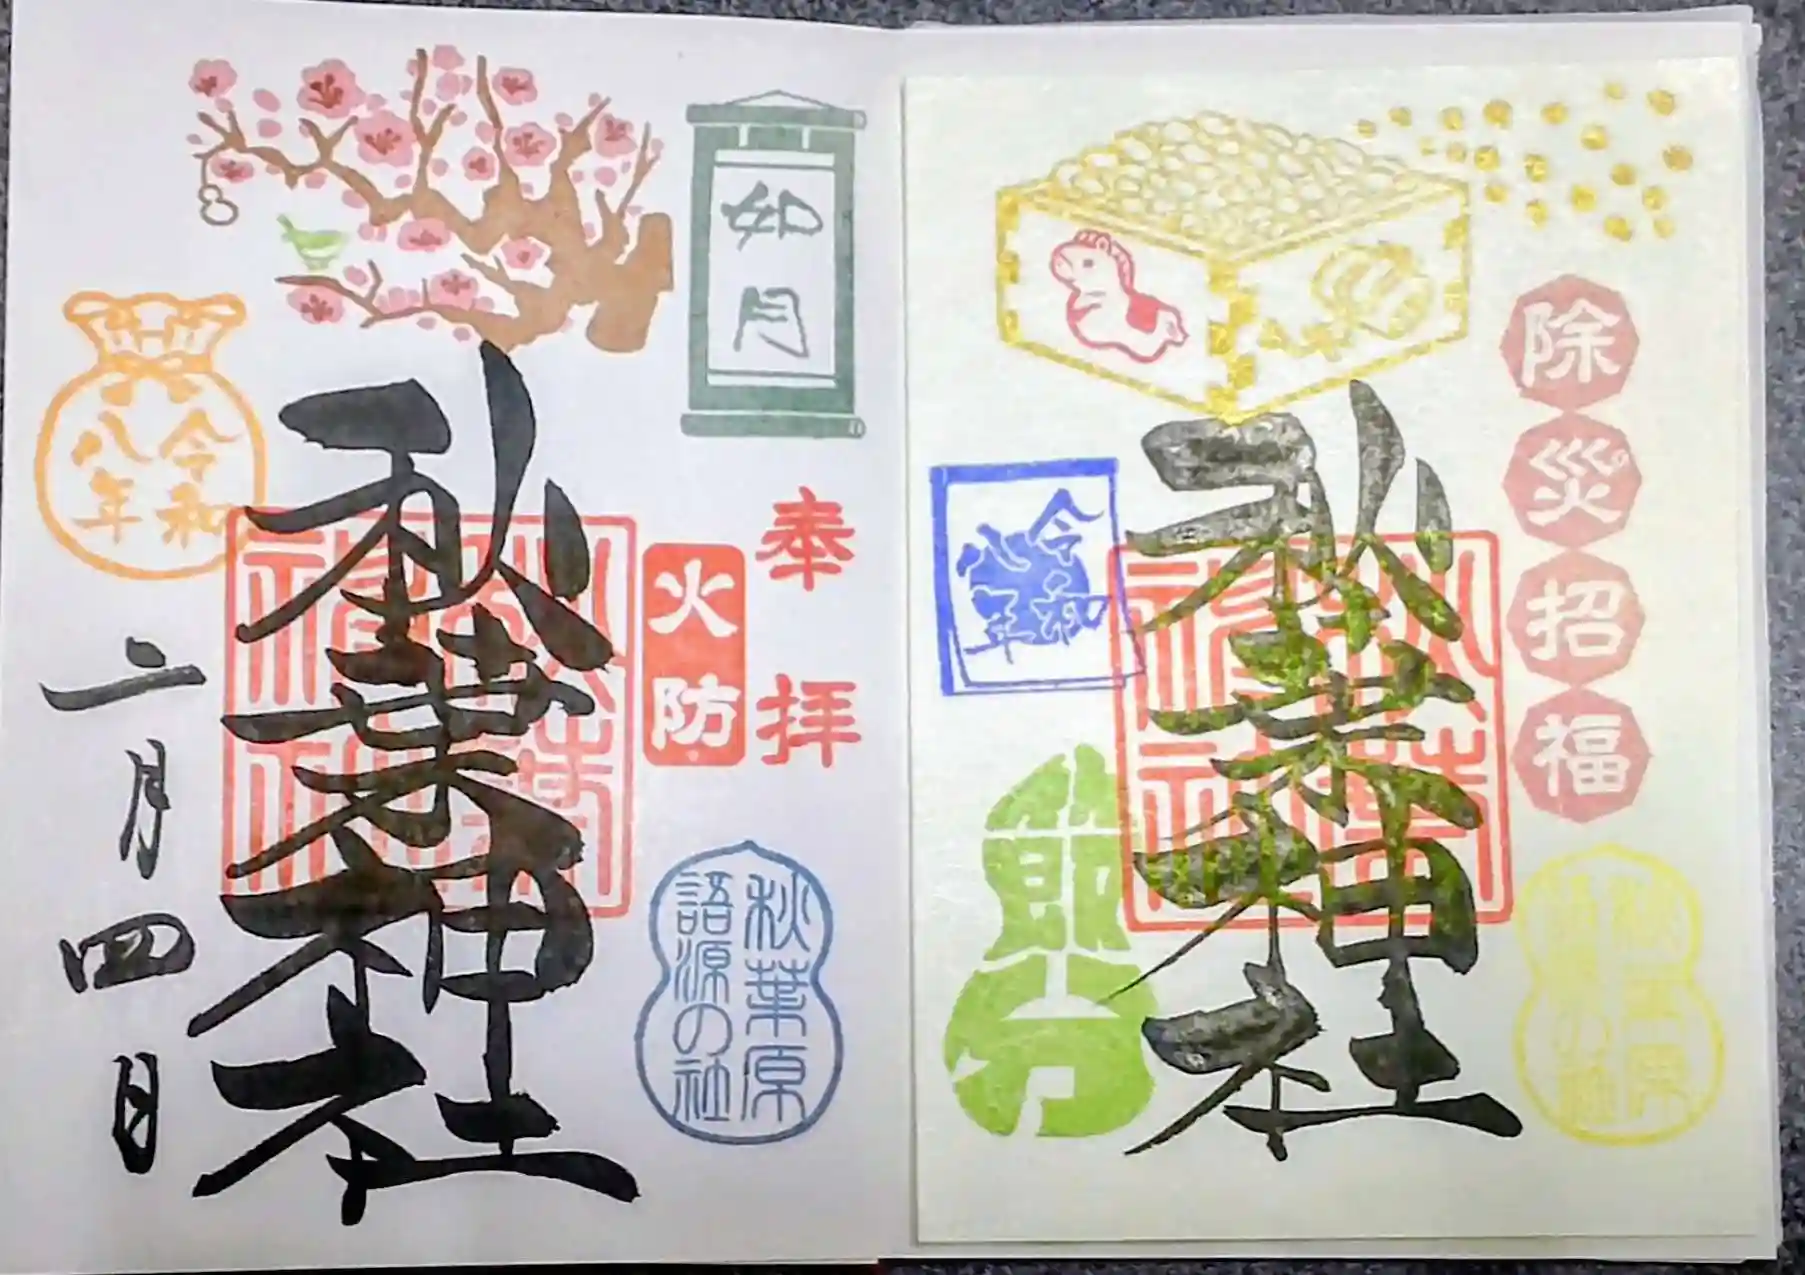 如月
奉拝
火防
秋葉原
語源の社
秋葉神社
秋葉神社
令和
八年
二月四日
除災招福
秋葉原
語源の社
秋葉神社
秋葉神社
令和
八年
節分